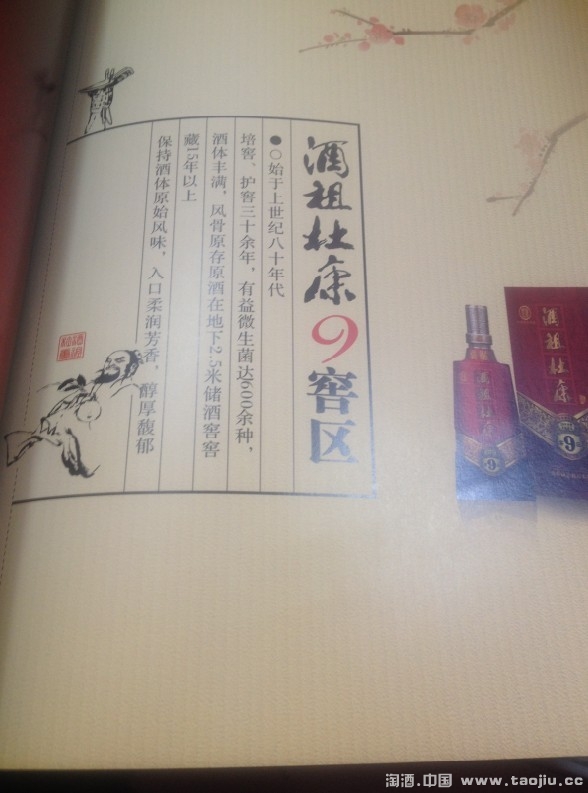 酒祖杜康9窖区
●○始于上世纪八十年代
培窖、护窖三十余年，有益微生菌达600余种，
酒体丰满，风骨原存原酒在地下2.5米储酒窖窖
藏15年以上
保持酒体原始风味，入口柔润芳香，醇厚馥郁
酒祖杜康
9
酒祖杜康
9
淘酒.中国 www.taojiu.cc